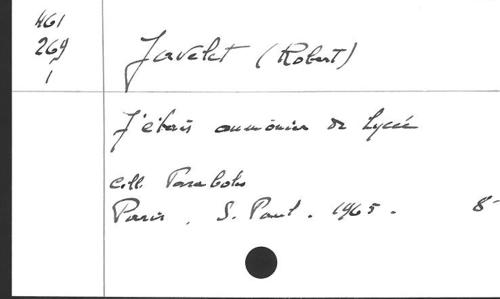 461
269
1
Javelet (Robert)
J'étais aumônier de Lycée
Coll. Paraboles
Paris, S. Paul. 1965. 8°